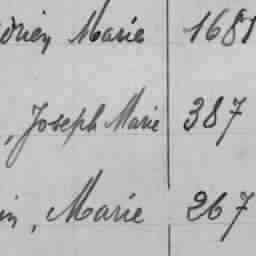 drien Marie 1681
, Joseph Marie 387
in, Marie 267